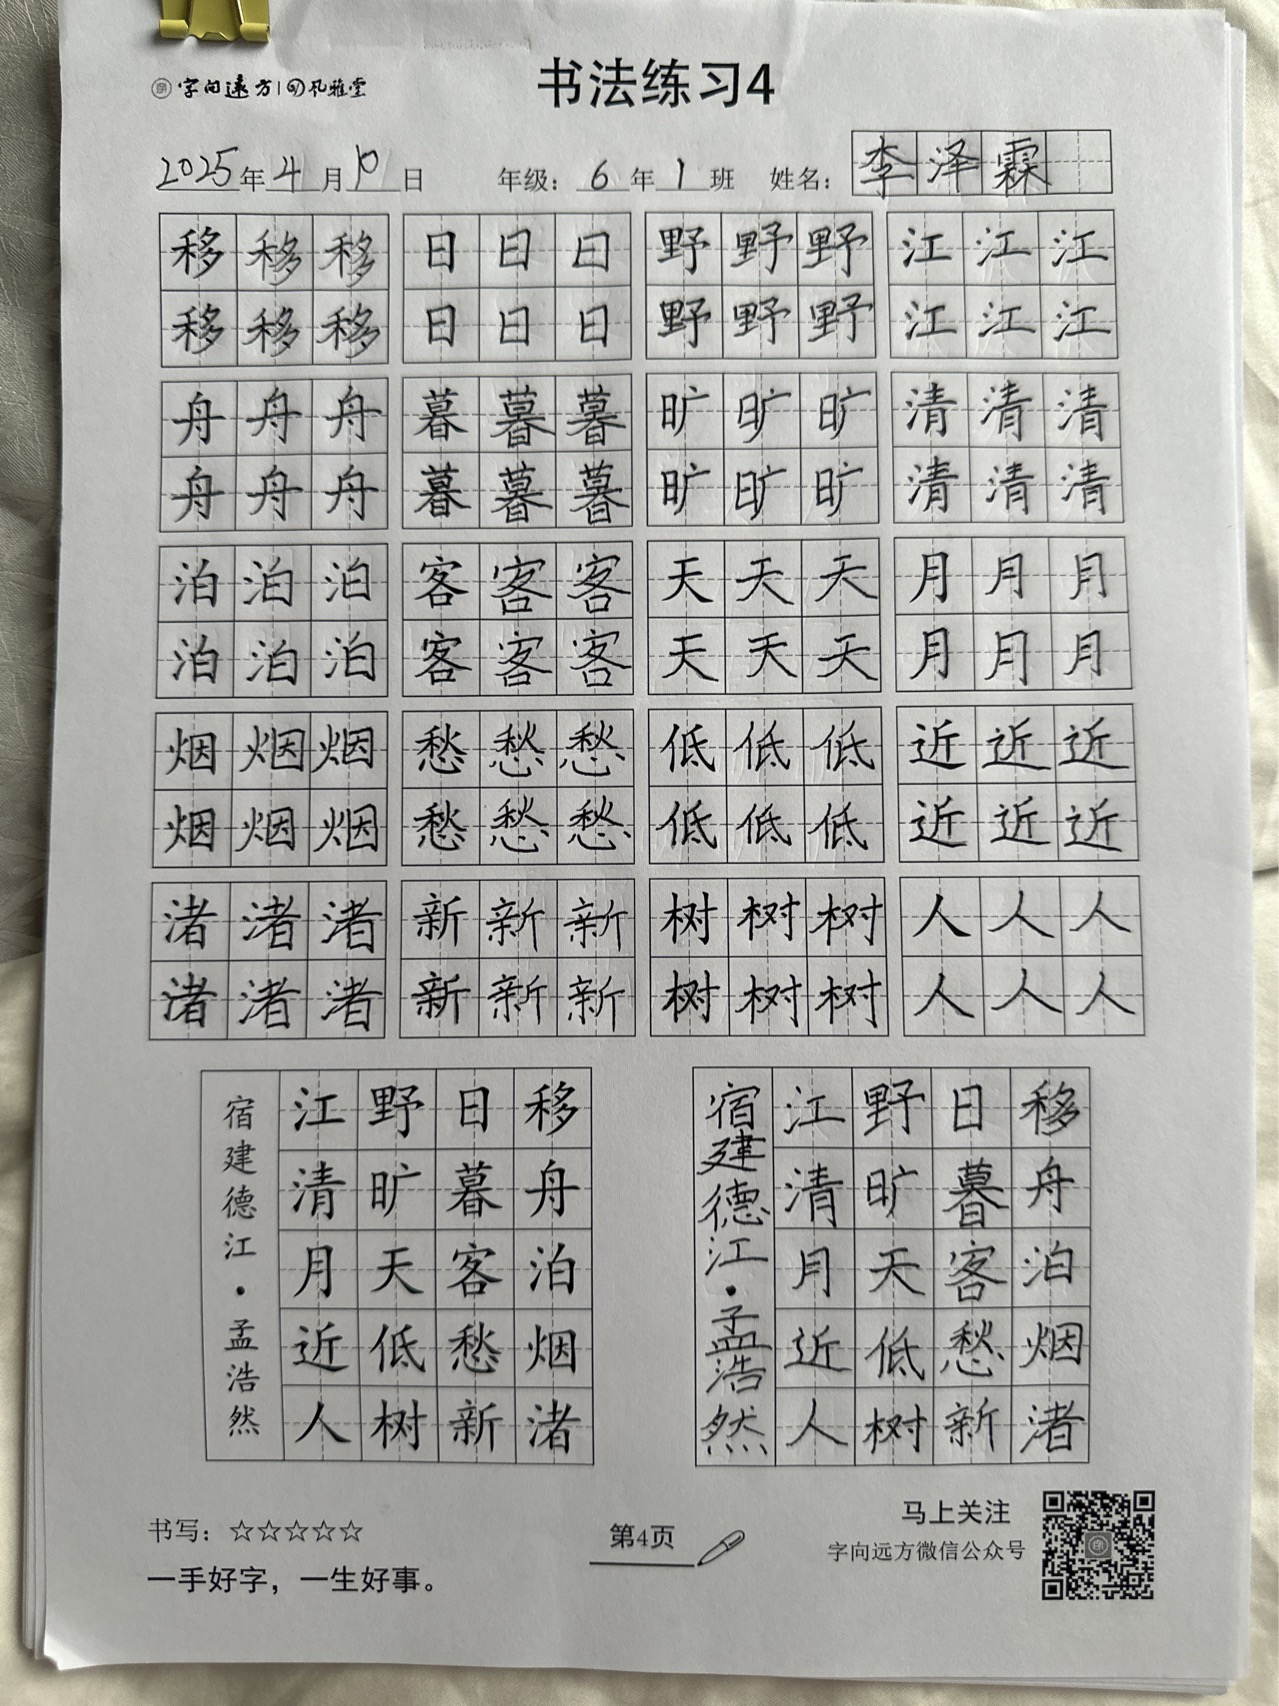 字向远方 风雅堂
书法练习4
2025年4月10日 年级：6年1班 姓名：李泽霖
移移移 日日日 野野野 江江江
移移移 日日日 野野野 江江江
舟舟舟 暮暮暮 旷旷旷 清清清
舟舟舟 暮暮暮 旷旷旷 清清清
泊泊泊 客客客 天天天 月月月
泊泊泊 客客客 天天天 月月月
烟烟烟 愁愁愁 低低低 近近近
烟烟烟 愁愁愁 低低低 近近近
渚渚渚 新新新 树树树 人人人
渚渚渚 新新新 树树树 人人人
移舟泊烟渚
日暮客愁新
野旷天低树
江清月近人
宿建德江·孟浩然
移舟泊烟渚
日暮客愁新
野旷天低树
江清月近人
宿建德江·孟浩然
书写：☆☆☆☆☆
一手好字，一生好事。
第4页
马上关注
字向远方微信公众号